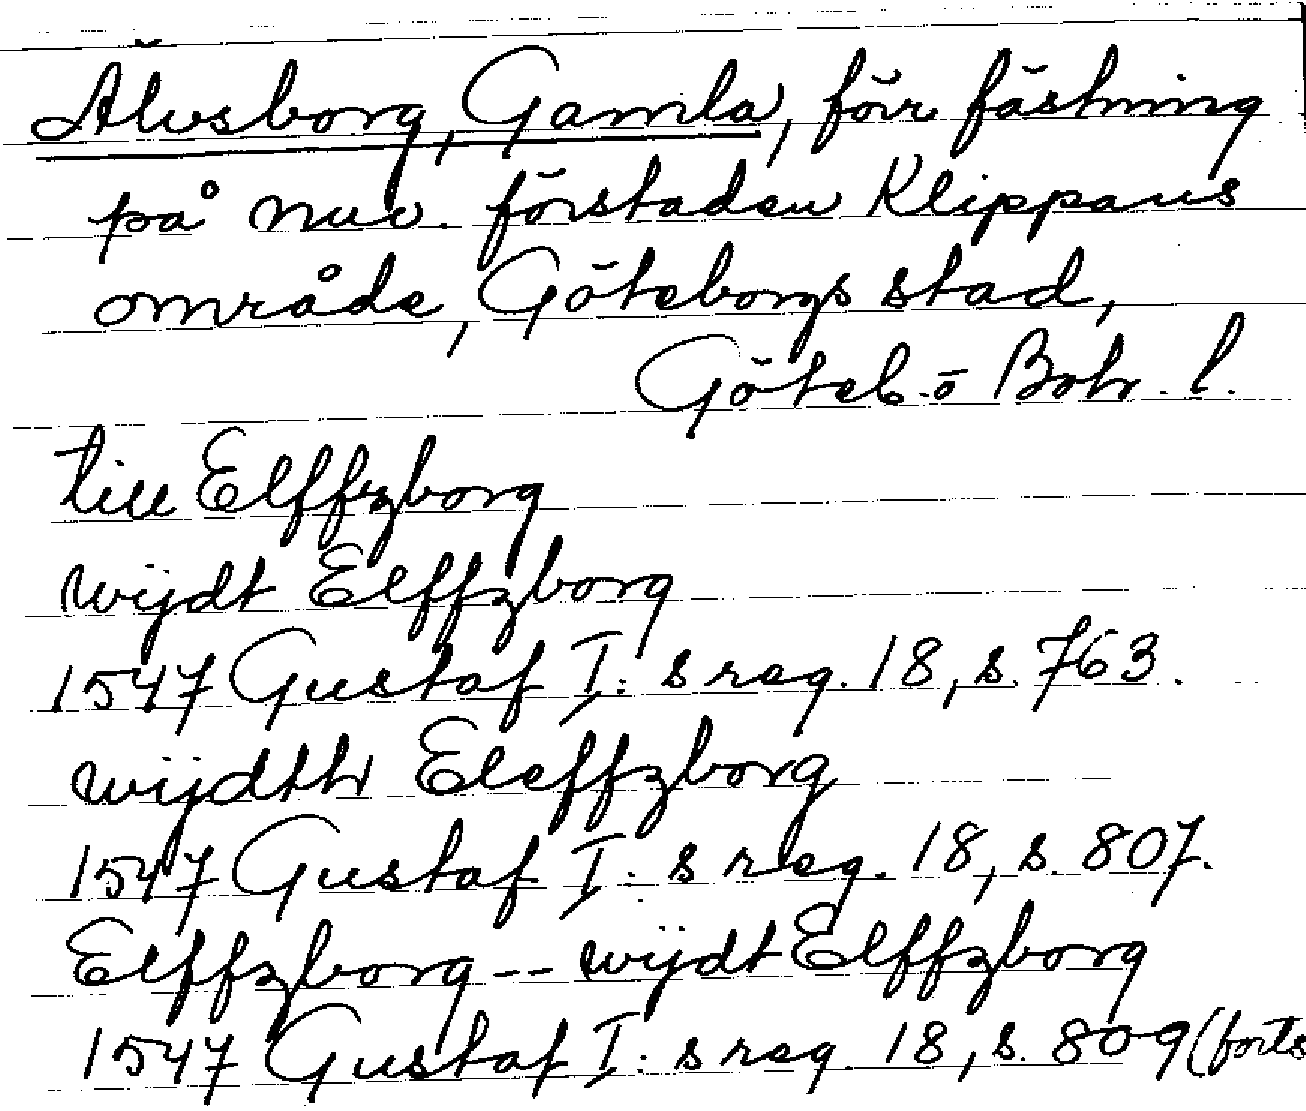 Älvsborg, Gamla, förr fästning
på nuv. förstaden Klippans
område, Göteborgs stad,
Göteb. o Boh. l.
till Elffzborg
wijdt Elffzborg
1547 Gustaf I: s reg. 18, s. 763.
wijdth Eleffzborg
1547 Gustaf I: s reg. 18, s. 807.
Elffzborg -- wijdt Elffzborg
1547 Gustaf I: s reg. 18, s. 809 (forts